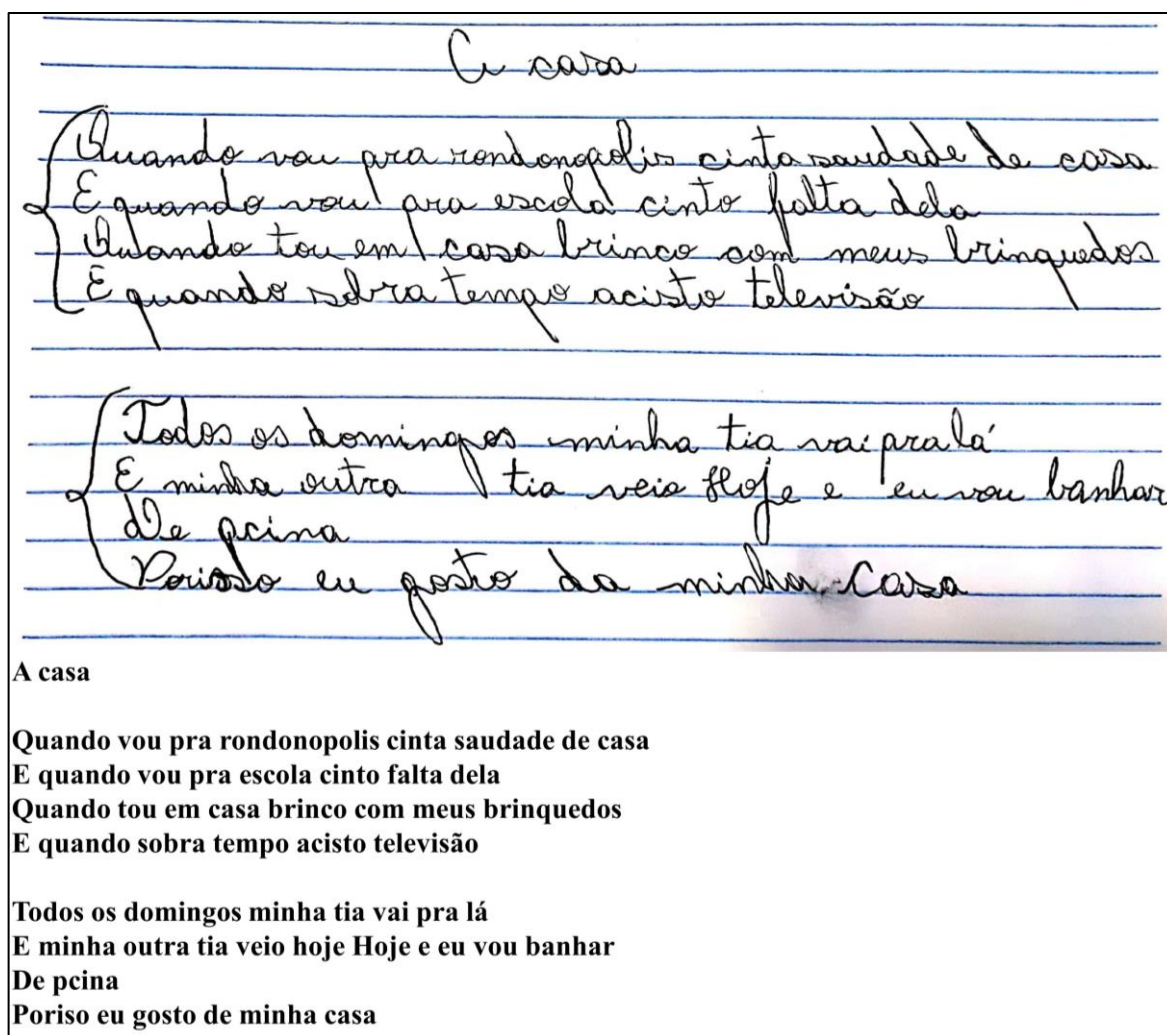 A casa
Quando vou pra rondonopolis cinta saudade de casa
E quando vou pra escola cinto falta dela
Quando tou em casa brinco com meus brinquedos
E quando sobra tempo acisto televisão
Todos os domingos minha tia vai pra lá
E minha outra tia veio Hoje e eu vou banhar
De pcina
Porisso eu gosto da minha Casa
A casa
Quando vou pra rondonopolis cinta saudade de casa
E quando vou pra escola cinto falta dela
Quando tou em casa brinco com meus brinquedos
E quando sobra tempo acisto televisão
Todos os domingos minha tia vai pra lá
E minha outra tia veio hoje Hoje e eu vou banhar
De pcina
Poriso eu gosto de minha casa